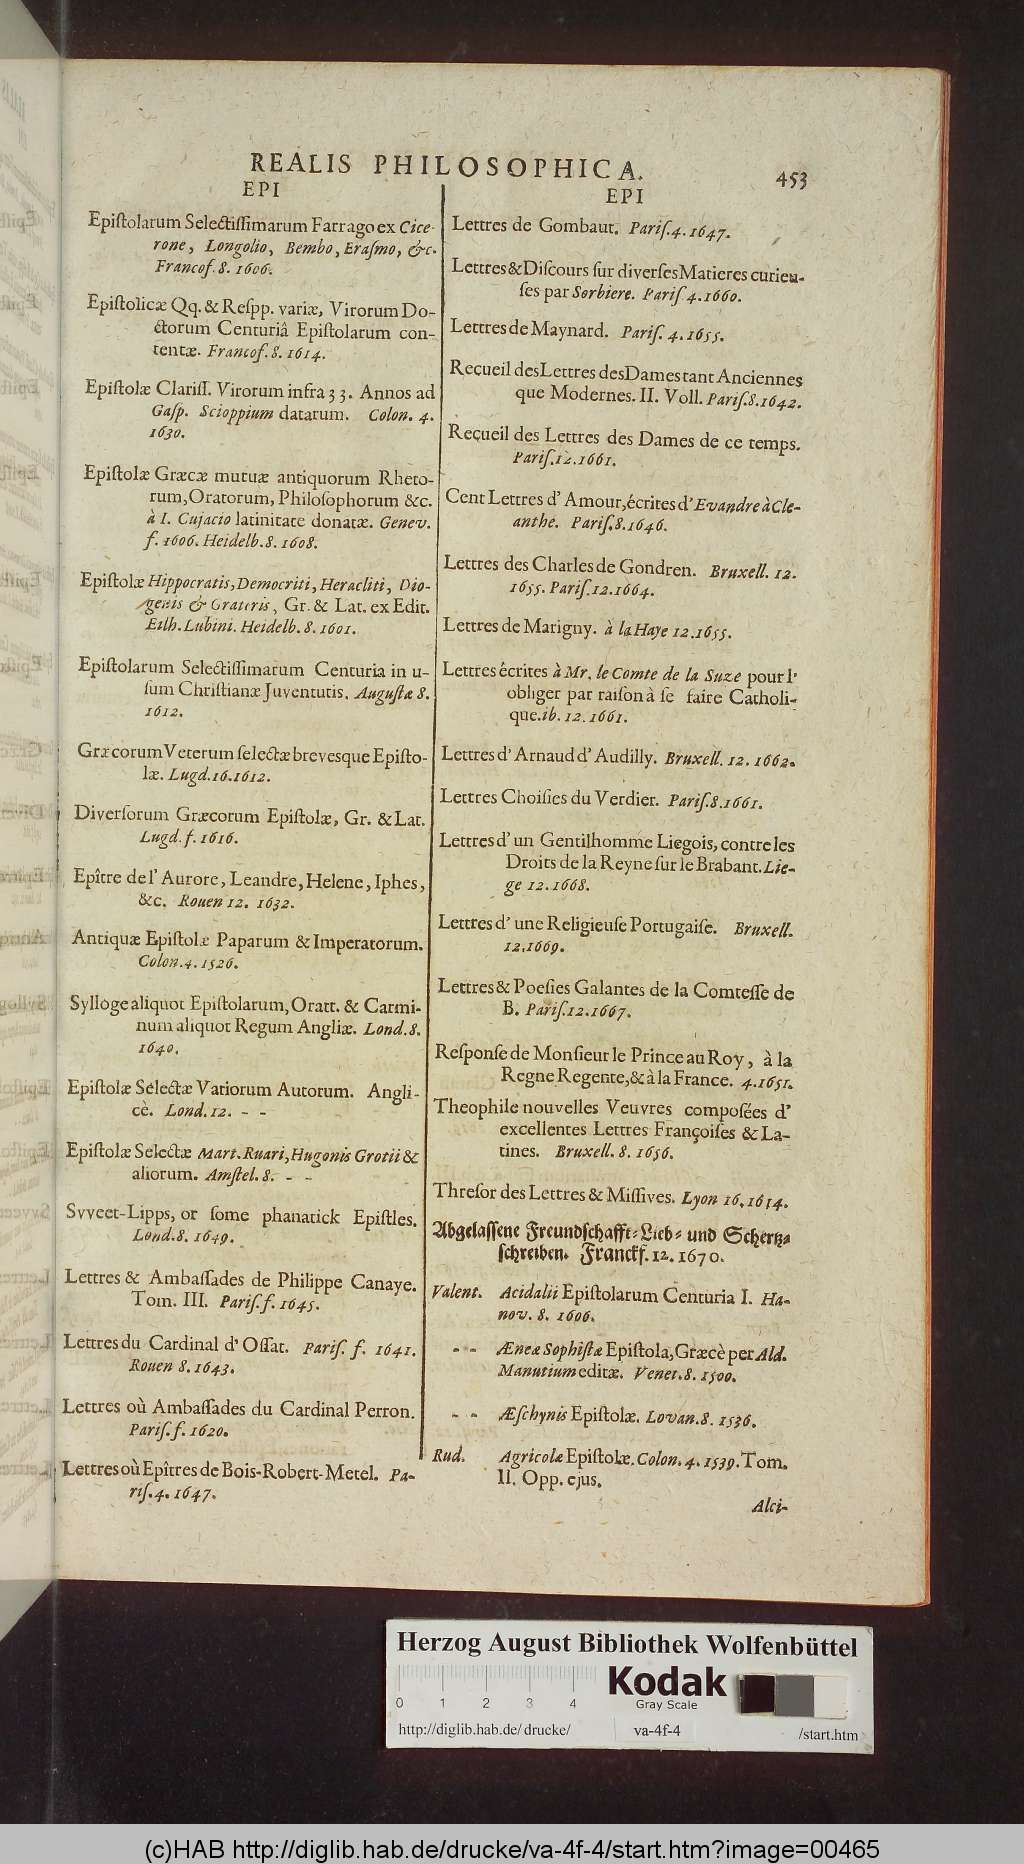 REALIS PHILOSOPHICA.
453
EPI
Epiſtolarum Selectiſſimarum Farrago ex Cice-
rone, Longolio, Bembo, Eraſmo, &c.
Francof. 8. 1606.
Epiſtolicæ Qq. & Reſpp. variæ, Virorum Do-
ctorum Centuriâ Epiſtolarum con-
tentæ. Francof. 8. 1614.
Epiſtolæ Clariſſ. Virorum infra 33. Annos ad
Gaſp. Scioppium datarum. Colon. 4.
1630.
Epiſtolæ Græcæ mutuæ antiquorum Rheto-
rum, Oratorum, Philoſophorum &c.
à I. Cujacio latinitate donatæ. Genev.
f. 1606. Heidelb. 8. 1608.
Epiſtolæ Hippocratis, Democriti, Heracliti, Dio-
genis & Crateris, Gr. & Lat. ex Edit.
Eilh. Lubini. Heidelb. 8. 1601.
Epiſtolarum Selectiſſimarum Centuria in u-
ſum Chriſtianæ Juventutis. Auguſtæ 8.
1612.
Græcorum Veterum ſelectæ brevesque Epiſto-
læ. Lugd. 16. 1612.
Diverſorum Græcorum Epiſtolæ, Gr. & Lat.
Lugd. f. 1616.
Epître de l' Aurore, Leandre, Helene, Iphes,
&c. Rouen 12. 1632.
Antiquæ Epiſtolæ Paparum & Imperatorum.
Colon. 4. 1526.
Sylloge aliquot Epiſtolarum, Oratt. & Carmi-
num aliquot Regum Angliæ. Lond. 8.
1640.
Epiſtolæ Selectæ Variorum Autorum. Angli-
cè. Lond. 12. - -
Epiſtolæ Selectæ Mart. Ruari, Hugonis Grotii &
aliorum. Amſtel. 8. - -
Svveet-Lipps, or ſome phanatick Epiſtles.
Lond. 8. 1649.
Lettres & Ambaſſades de Philippe Canaye.
Tom. III. Pariſ. f. 1645.
Lettres du Cardinal d' Oſſat. Pariſ. f. 1641.
Rouen 8. 1643.
Lettres où Ambaſſades du Cardinal Perron.
Pariſ. f. 1620.
Lettres où Epîtres de Bois-Robert-Metel. Pa-
riſ. 4. 1647.
EPI
Lettres de Gombaut. Pariſ. 4. 1647.
Lettres & Diſcours ſur diverſes Matieres curieu-
ſes par Sorbiere. Pariſ 4. 1660.
Lettres de Maynard. Pariſ. 4. 1655.
Recueil des Lettres des Dames tant Anciennes
que Modernes. II. Voll. Pariſ. 8. 1642.
Reçueil des Lettres des Dames de ce temps.
Pariſ. 12. 1661.
Cent Lettres d' Amour, écrites d' Evandre à Cle-
anthe. Pariſ. 8. 1646.
Lettres des Charles de Gondren. Bruxell. 12.
1655. Pariſ. 12. 1664.
Lettres de Marigny. à la Haye 12. 1655.
Lettres écrites à Mr. le Comte de la Suze pour l'
obliger par raiſon à ſe faire Catholi-
que. ib. 12. 1661.
Lettres d' Arnaud d' Audilly. Bruxell. 12. 1662.
Lettres Choiſies du Verdier. Pariſ. 8. 1661.
Lettres d' un Gentilhomme Liegois, contre les
Droits de la Reyne ſur le Brabant. Lie-
ge 12. 1668.
Lettres d' une Religieuſe Portugaiſe. Bruxell.
12. 1669.
Lettres & Poeſies Galantes de la Comteſſe de
B. Pariſ. 12. 1667.
Reſponſe de Monſieur le Prince au Roy, à la
Regne Regente, & à la France. 4. 1651.
Theophile nouvelles Veuvres compoſées d'
excellentes Lettres Françoiſes & La-
tines. Bruxell. 8. 1656.
Threſor des Lettres & Miſſives. Lyon 16. 1614.
Abgelaſſene Freundſchafft- Lieb- und Schertz-
ſchreiben. Franckf. 12. 1670.
Valent. Acidalii Epiſtolarum Centuria I. Ha-
nov. 8. 1606.
- - Æneæ Sophiſtæ Epiſtola, Græcè per Ald.
Manutium editæ. Venet. 8. 1500.
- - Æſchynis Epiſtolæ. Lovan. 8. 1536.
Rud. Agricolæ Epiſtolæ. Colon. 4. 1539. Tom.
II. Opp. ejus.
Alci-
Herzog August Bibliothek Wolfenbüttel
Kodak
Gray Scale
0 1 2 3 4
http://diglib.hab.de/drucke/ va-4f-4 /start.htm
(c)HAB http://diglib.hab.de/drucke/va-4f-4/start.htm?image=00465